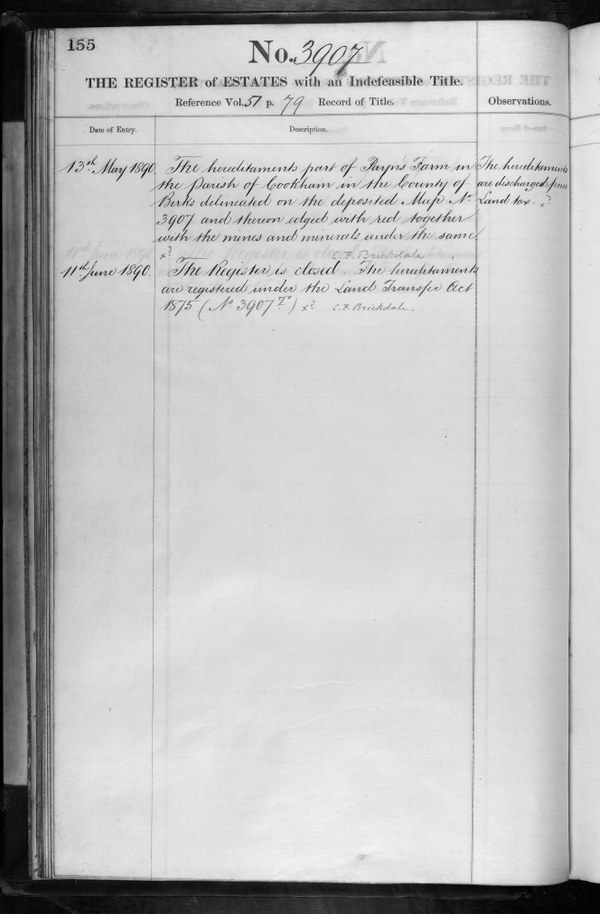 155
No. 3907
THE REGISTER of ESTATES with an Indefeasible Title.
Reference Vol. 51 p. 79 Record of Title.
Observations.
Date of Entry.
Description.
13th May 1890
The hereditaments part of Payn's Farm in
the Parish of Cookham in the County of
Berks delineated on the deposited Map No
3907 and thereon edged with red together
with the mines and minerals under the same.
C. F. Brickdale
The hereditaments
are discharged from
Land tax.
11th June 1890.
The Register is closed. The hereditaments
are registered under the Land Transfer Act
1875 (No 3907 T) C. F. Brickdale.